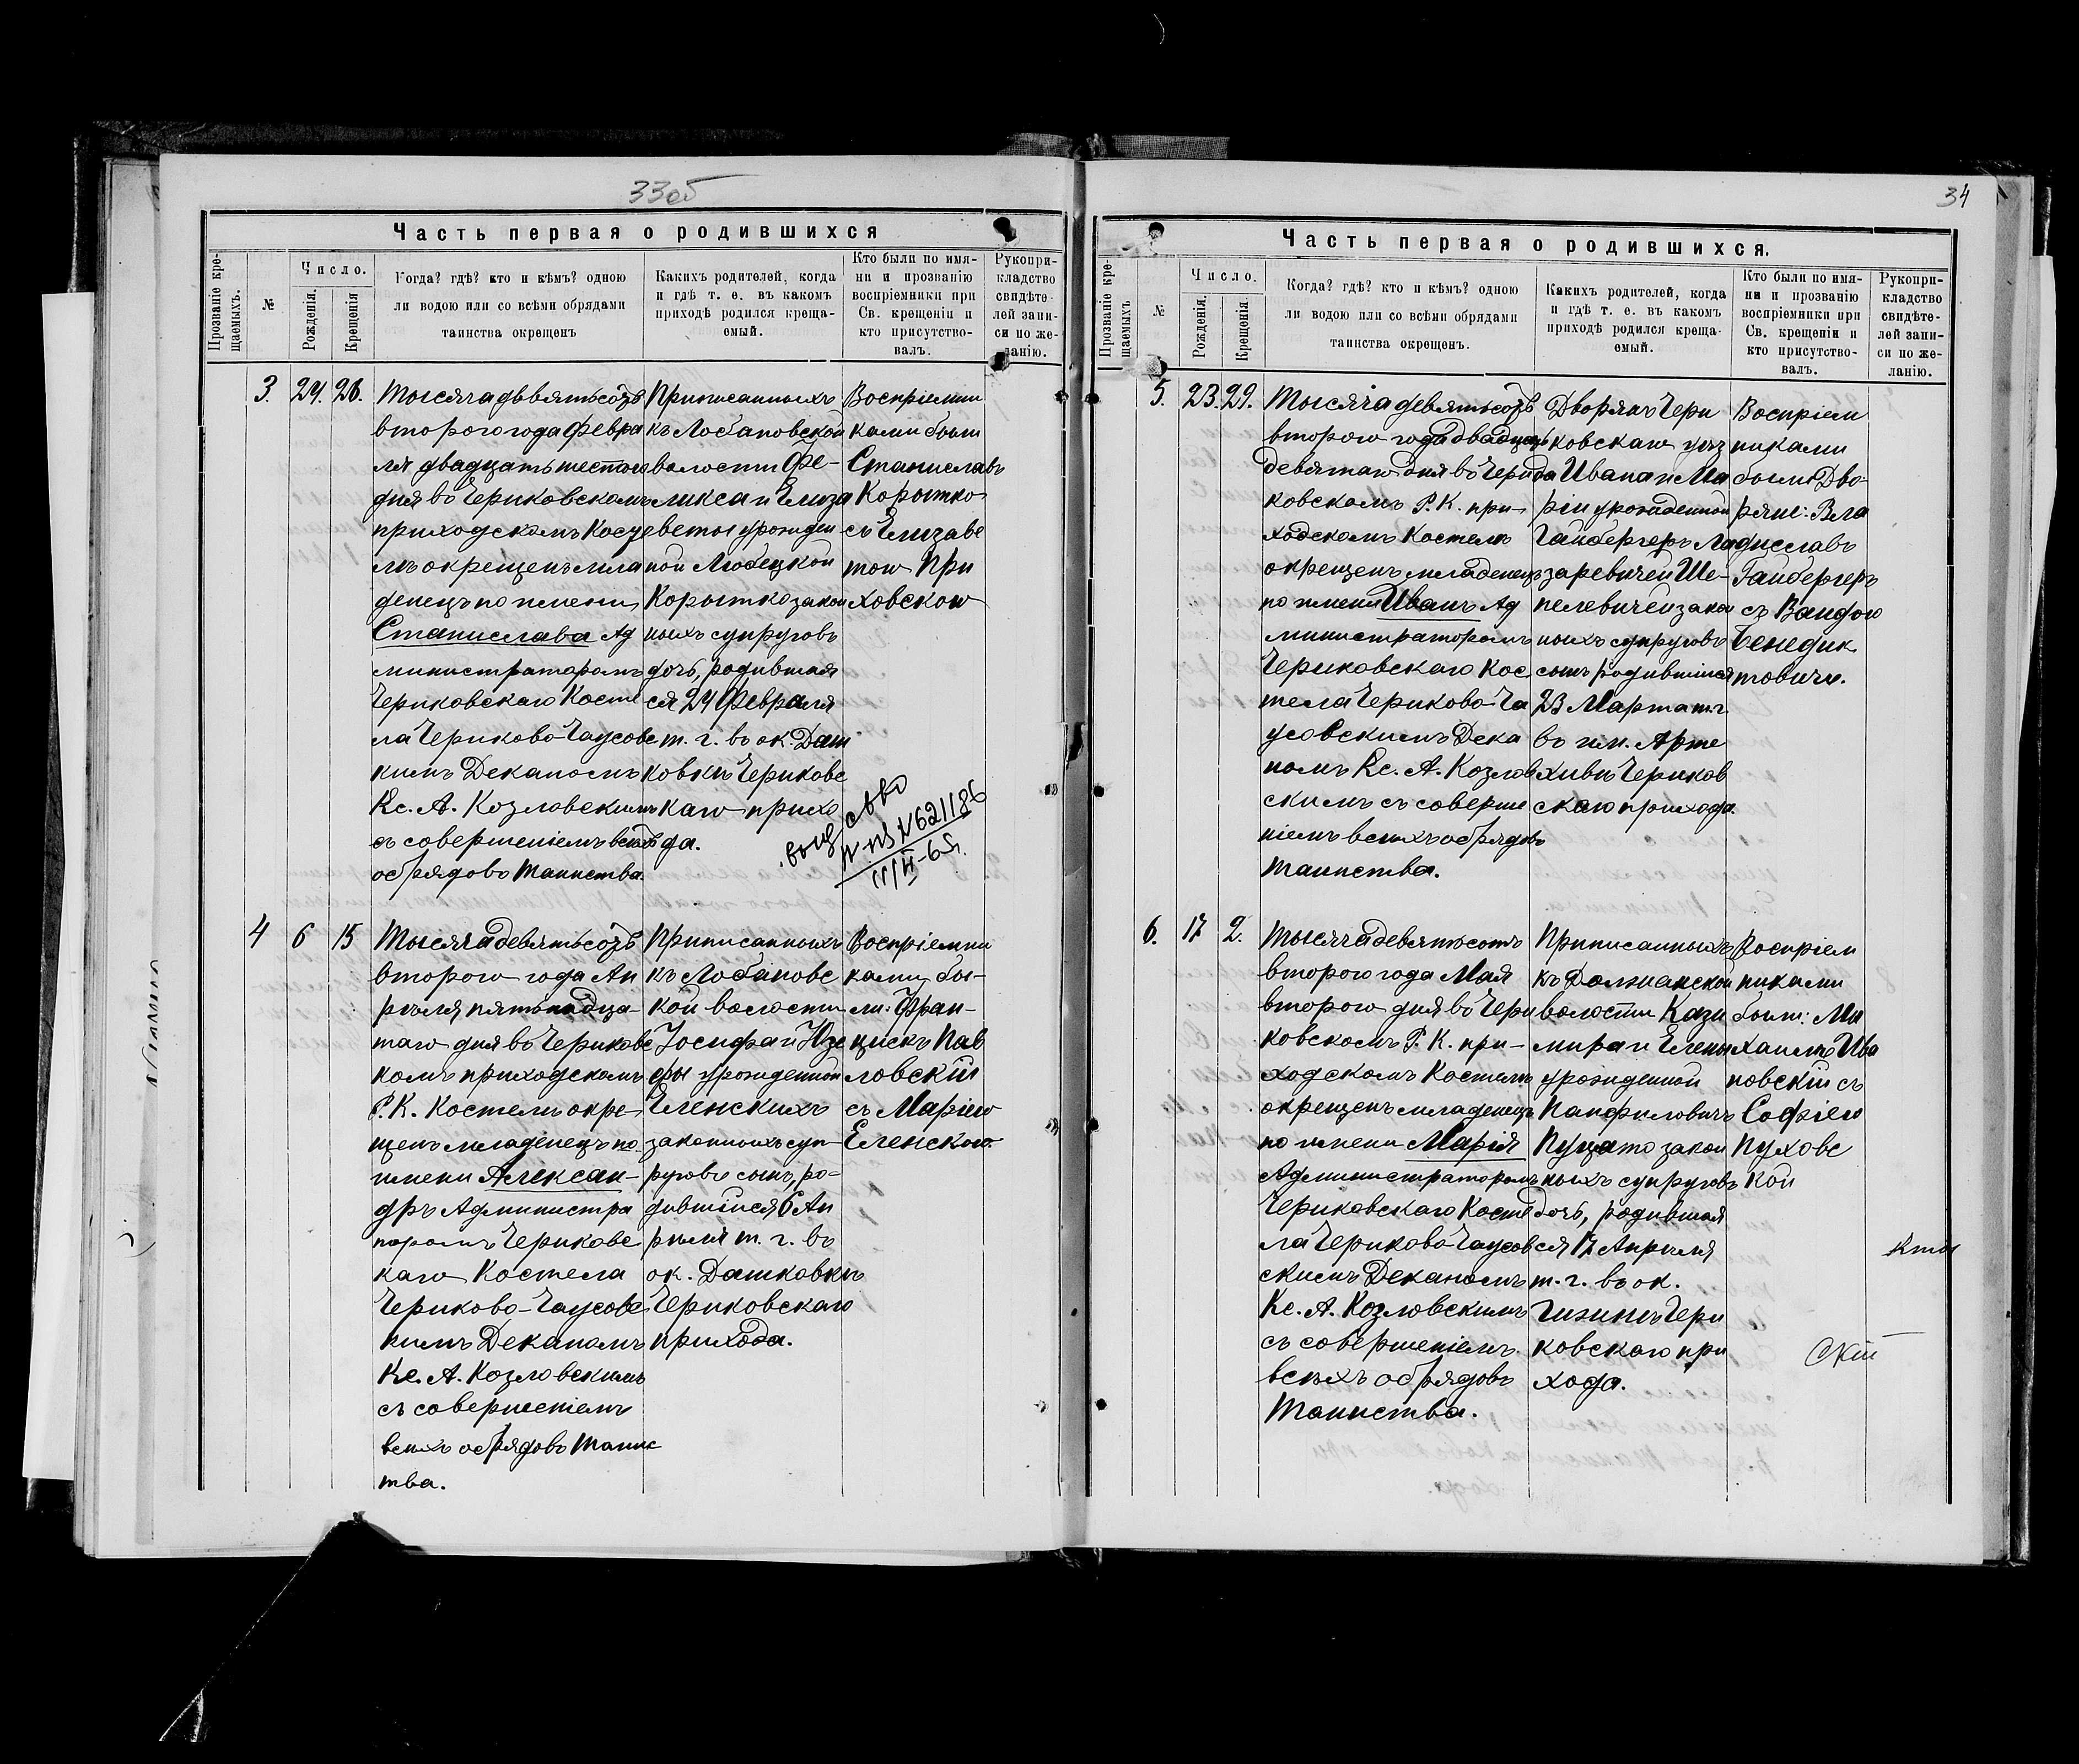 33об
Часть первая о родившихся
Прозваніе кре-
щаемыхъ.
№
Число.
Рожденія.
Крещенія
Когда? гдѣ? кто и кѣмъ? одною
ли водою или со всѣми обрядами
таинства окрещенъ
Какихъ родителей, когда
и гдѣ т. е. въ какомъ
приходѣ родился креща-
емый.
Кто были по имя-
ни и прозванію
воспріемники при
Св. крещеніи и
кто присутство-
валъ.
Рукопри-
кладство
свидѣте-
лей запи-
си по же-
ланію.
3. 24. 26.
Тысяча дѣвятьсотъ
второго года Февра
ля двадцать шестого
дня въ Чериковскомъ
приходскомъ Косте
лѣ окрещенъ мла
денецъ по имени
Станислава Ад
министраторомъ
Чериковскаго Косте
ла Чериково-Чаусовс
кимъ Деканомъ
Кс. А. Козловскимъ
съ совершеніемъ всѣхъ
обрядовъ Таинства.
Приписанныхъ
къ Лобановской
волости Фе-
ликса и Елиза
веты урожден
ной Любецкой
Корытко закон
ныхъ супруговъ
дочь, родившая
ся 24 Февраля
т. г. въ ок. Даш
ковкѣ Чериковс
каго прихо
да.
Воспріемни
ками были
Станиславъ
Корытко
съ Елизаве
тою При
ховскою
4 6 15
Тысяча девятьсотъ
второго года Ап
рѣля пятьнадца-
таго дня въ Чериковс
комъ приходскомъ
Р. К. Костелѣ окре
щенъ младенецъ по
имени Алексан-
дръ Администра
торомъ Чериковс
каго Костела
Чериково-Чаусовс
кимъ Деканомъ
Кс. А. Козловскимъ
съ совершеніемъ
всѣхъ обрядовъ Таинс
тва.
Приписанныхъ
къ Лобановс
кой волости
Іосифа и Юзе
фы урожденной
Еленскихъ
законныхъ суп-
руговъ сынъ, ро-
дившійся 6 Ап
рѣля т. г. въ
ок. Дашковкѣ
Чериковскаго
прихода.
Воспріемни
ками бы-
ли: Фран-
цискъ Пав
ловскій
съ Маріею
Еленскою.
34
Часть первая о родившихся.
Прозваніе кре-
щаемыхъ
№
Число.
Рожденія.
Крещенія.
Когда? гдѣ? кто и кѣмъ? одною
ли водою или со всѣми обрядами
таинства окрещенъ.
Какихъ родителей, когда
и гдѣ т. е. въ какомъ
приходѣ родился креща-
емый.
Кто были по имя-
ни и прозванію
воспріемники при
Св. крещеніи и
кто присутство-
валъ.
Рукопри-
кладство
свидѣте-
лей запи-
си по же-
ланію.
5. 23. 29.
Тысяча девятьсотъ
второго года двадцать
девятаго дня въ Чери
ковскомъ Р. К. при-
ходскомъ Костелѣ
окрещенъ младенецъ
по имени Иванъ Ад
министраторомъ
Чериковскаго Кос
тела Чериково-Ча
усовскимъ Дека
номъ Кс. А. Козлов
скимъ съ соверше
ніемъ всѣхъ обрядовъ
Таинства.
Дворянъ Чери
ковскаго уѣз
да Ивана и Ма
ріи урожденной
Гайбергеръ Ла
заревичей Ше-
пелевичей закон
ныхъ супруговъ
сынъ родившійся
23 Марта т. г.
въ им. Арте
ховкѣ Чериков
скаго прихода.
Воспріем
никами
были: Дво-
ряне: Вла
диславъ
Гайбергеръ
съ Вандою
Бенедик
товичъ.
6. 17 2.
Тысяча девятьсотъ
второго года Мая
второго дня въ Чери
ковскомъ Р. К. при-
ходскомъ Костелѣ
окрещенъ младенецъ
по имени Марія
Администраторомъ
Чериковскаго Косте
ла Чериково-Чаусов
скимъ Деканомъ
Кс. А. Козловскимъ
съ совершеніемъ
всѣхъ обрядовъ
Таинства.
Приписанныхъ
къ Должанской
волости Кази
мира и Елены
урожденной
Панфиловичъ
Пуцято закон
ныхъ супруговъ
дочь, родившая
ся 17 Апрѣля
т. г. въ ок.
Чери
ковскаго при
хода.
Воспріем
никами
были: Ми
хаилъ Ива
новскій съ
Софіею
Пуховс
кой